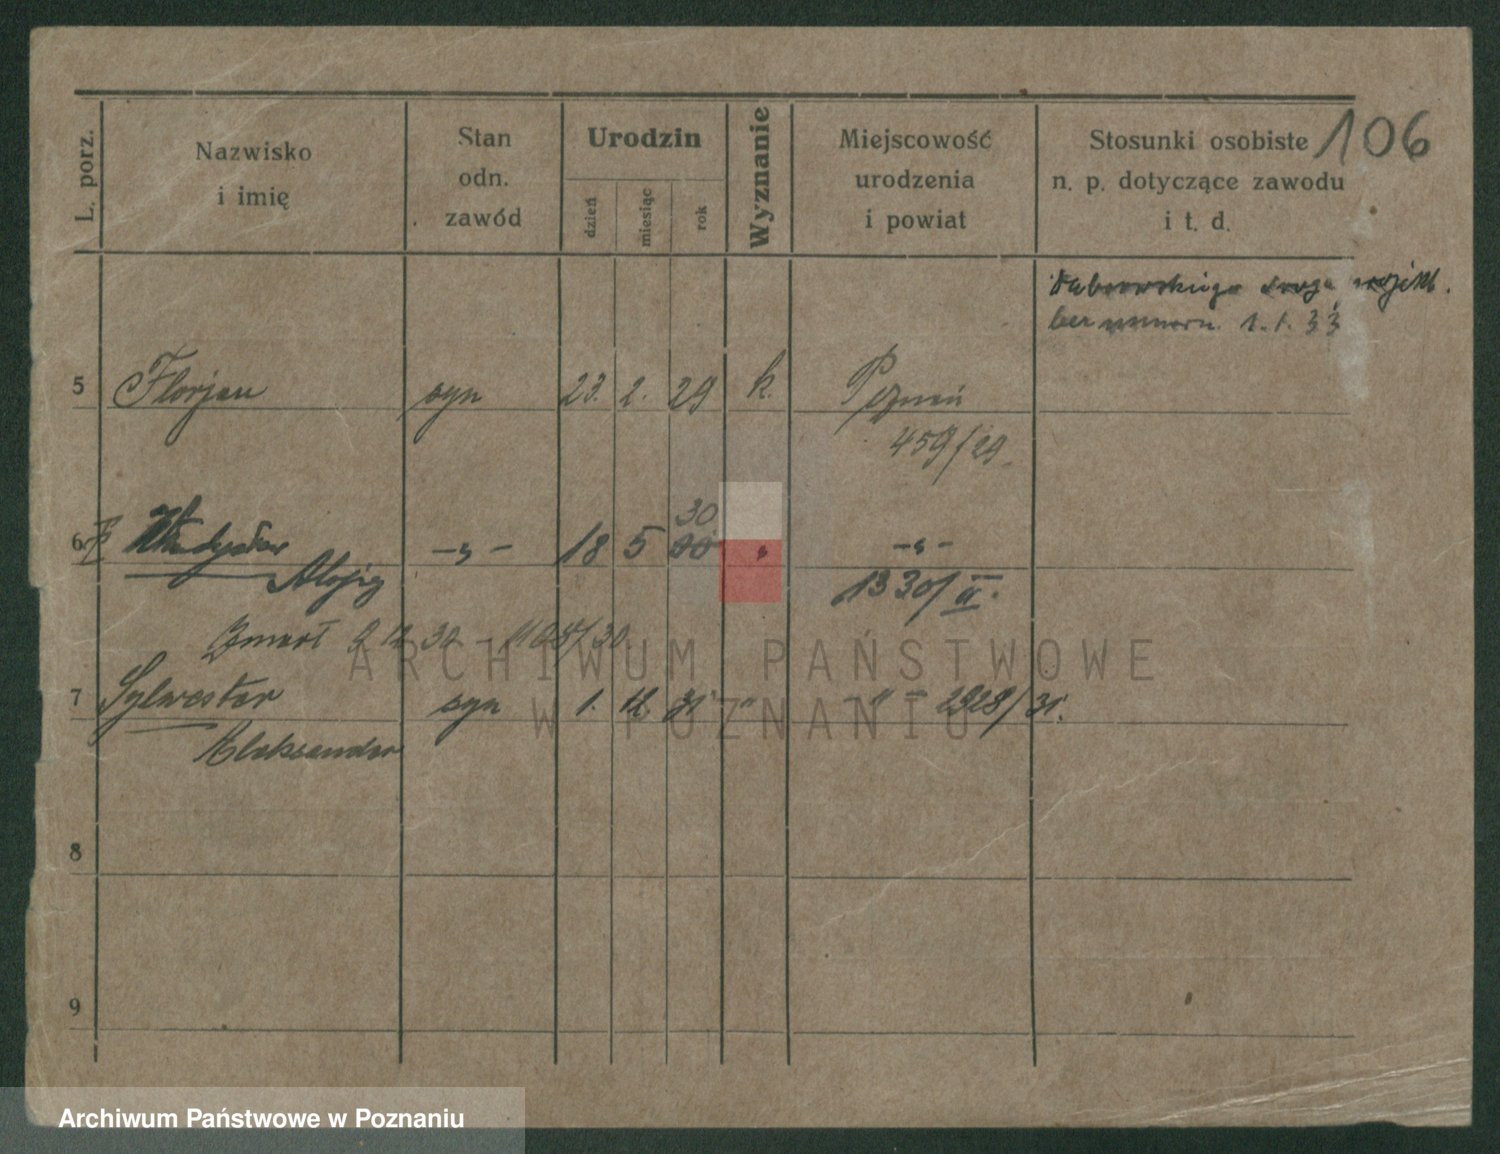 106
L. porz.
Nazwisko
i imię
Stan
odn.
zawód
Urodzin
dzień
miesiąc
rok
Wyznanie
Miejscowość
urodzenia
i powiat
Stosunki osobiste
n. p. dotyczące zawodu
i t. d.
bez 1.1.33
5 Florjan syn 23. 2. 29 k. Poznań
459/29
30.
6 Władysław -„- 18 5 „ -„-
Alojzy 1330/II.
Zmarł 30
7 Sylwester syn 1. 12 31 " - " - 2928/31.
Aleksander
8
9
ARCHIWUM PAŃSTWOWE
W POZNANIU
Archiwum Państwowe w Poznaniu